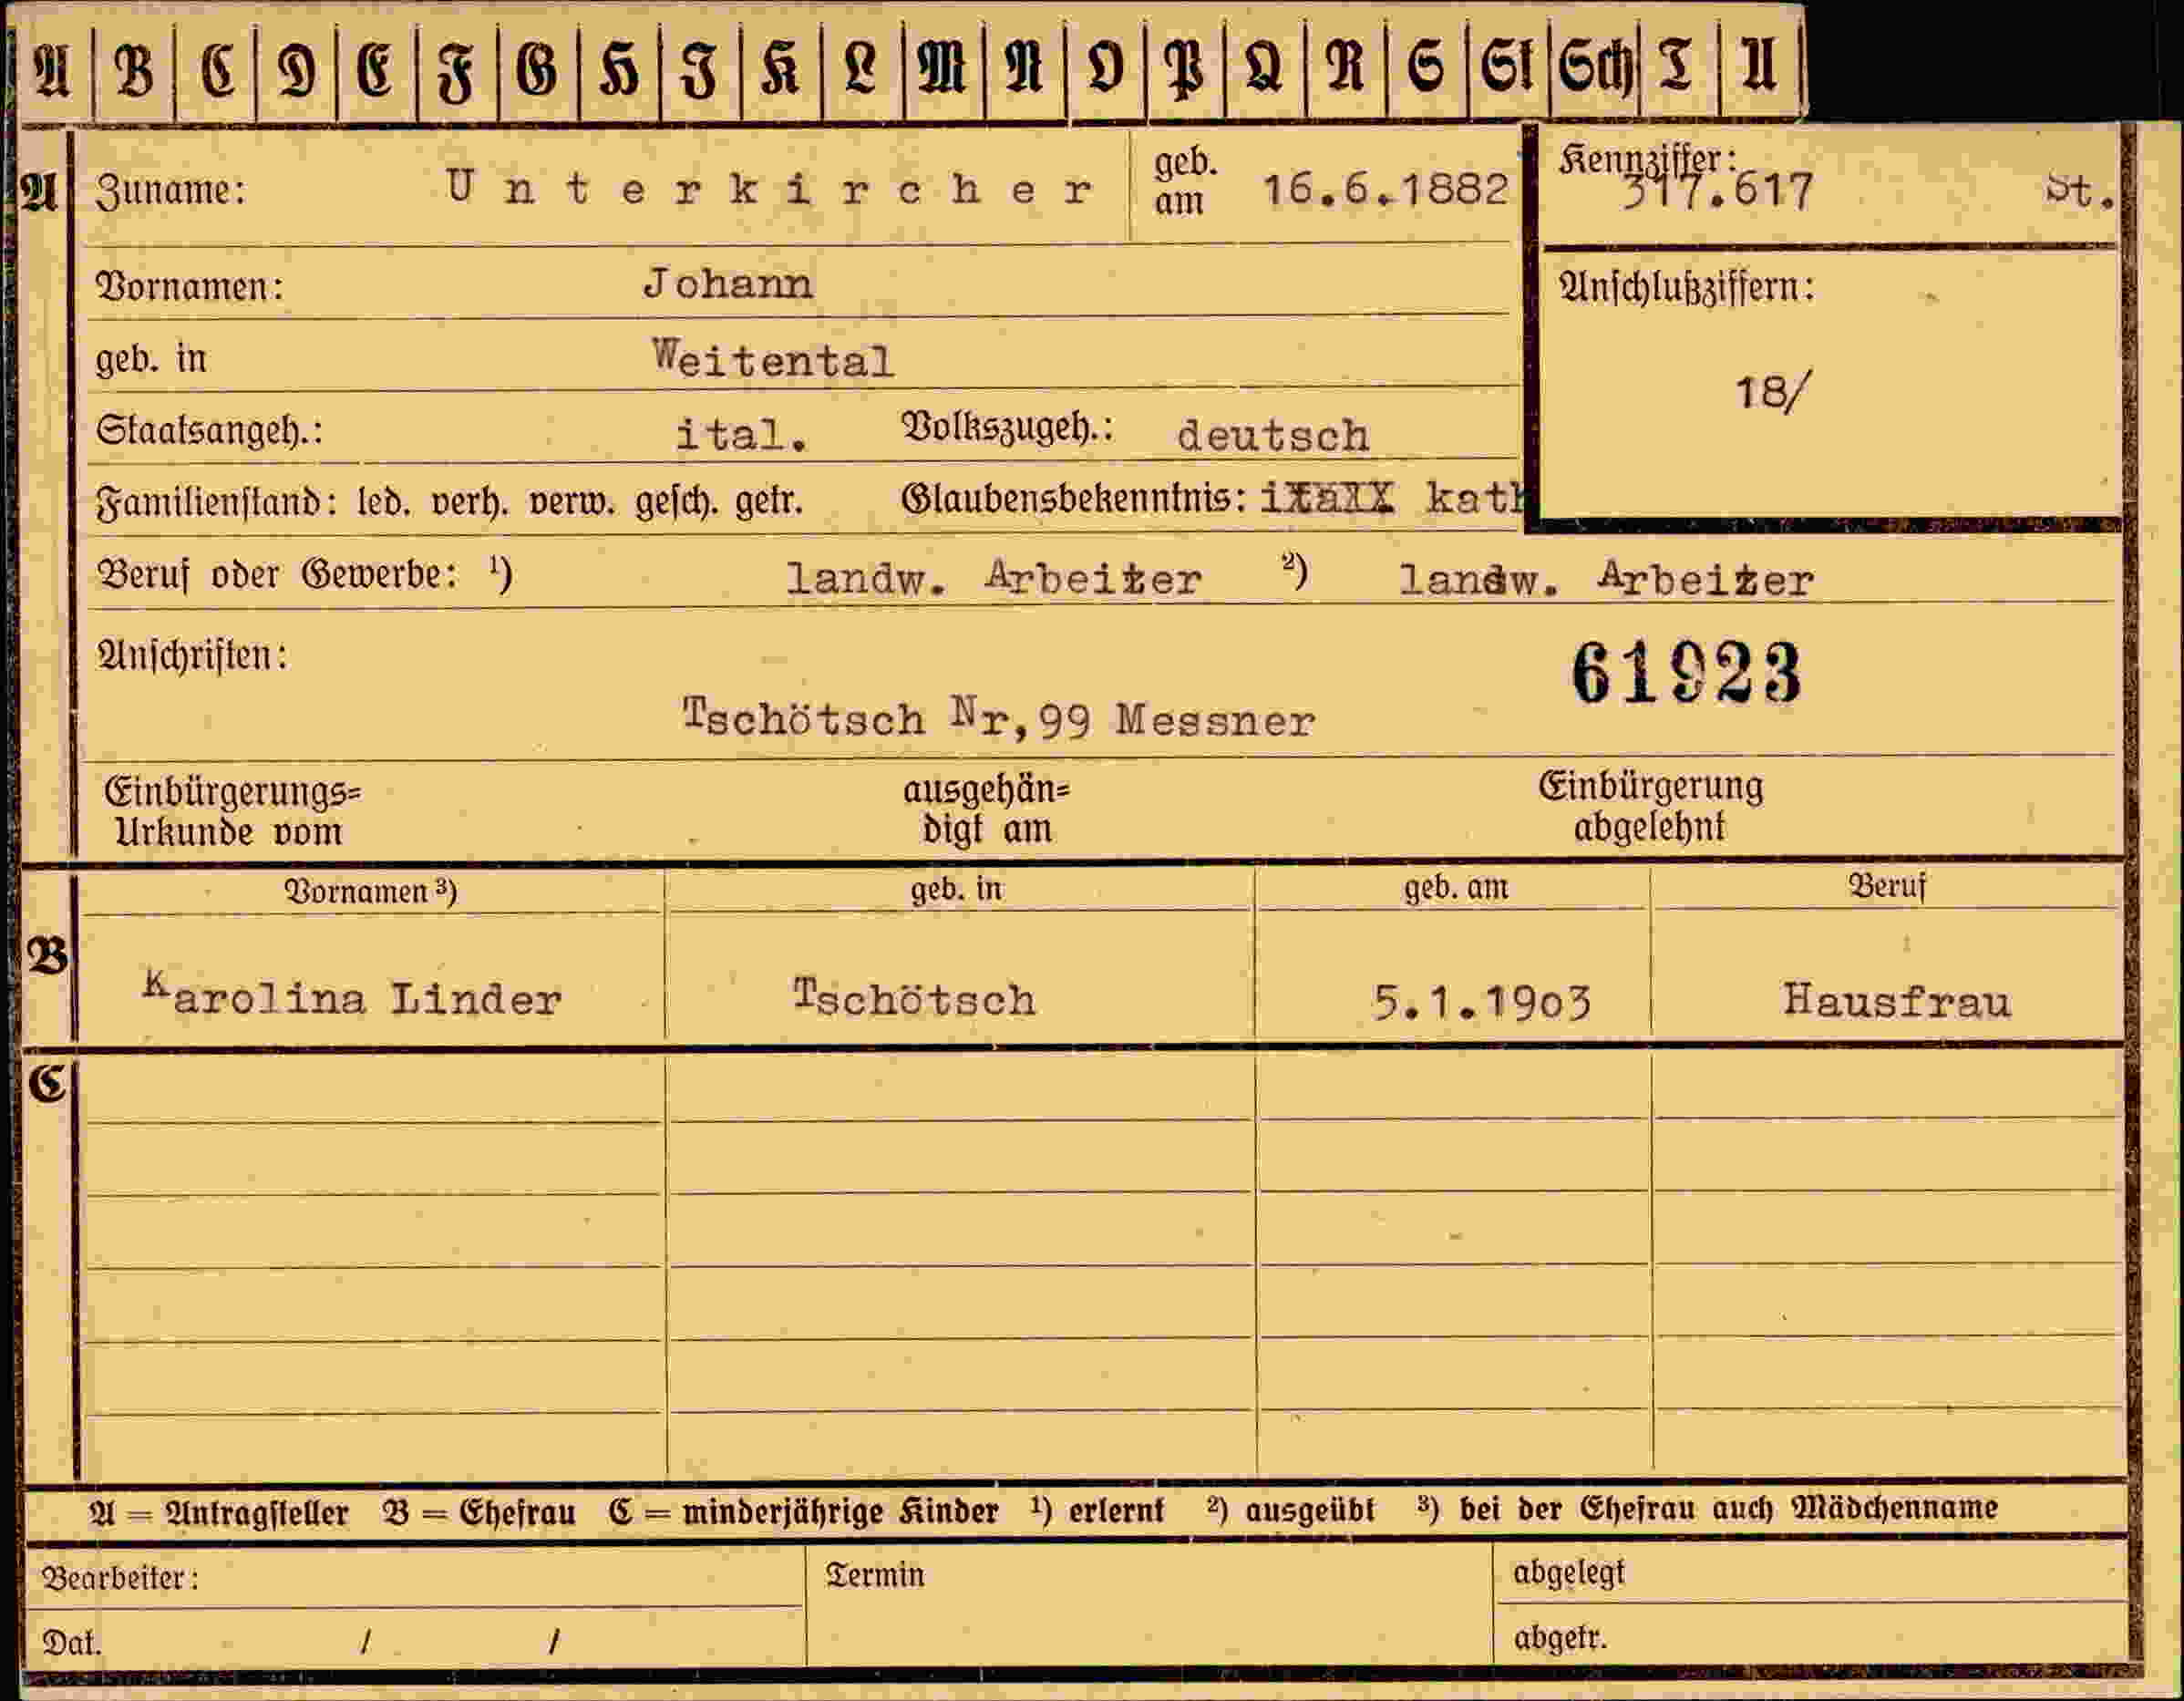 A B C D E F G H I K L M N O P Q R S St Sch T U
A Zuname: Unterkircher geb. am 16.6.1882 Kennziffer: 317.617 St.
Vornamen: Johann Anschlußziffern:
geb. in Weitental
18/
Staatsangeh.: ital. Volkszugeh.: deutsch
Familienstand: led. verh. verw. gesch. getr. Glaubensbekenntnis: kath
Beruf oder Gewerbe: ¹) landw. Arbeiter ²) landw. Arbeiter
Anschriften: 61923
Tschötsch Nr,99 Messner
Einbürgerungs= ausgehän= Einbürgerung
Urkunde vom digt am abgelehnt
Vornamen ³) geb. in geb. am Beruf
B
Karolina Linder Tschötsch 5.1.1903 Hausfrau
C
A = Antragsteller B = Ehefrau C = minderjährige Kinder ¹) erlernt ²) ausgeübt ³) bei der Ehefrau auch Mädchenname
Bearbeiter: Termin abgelegt
Dat. / / abgetr.